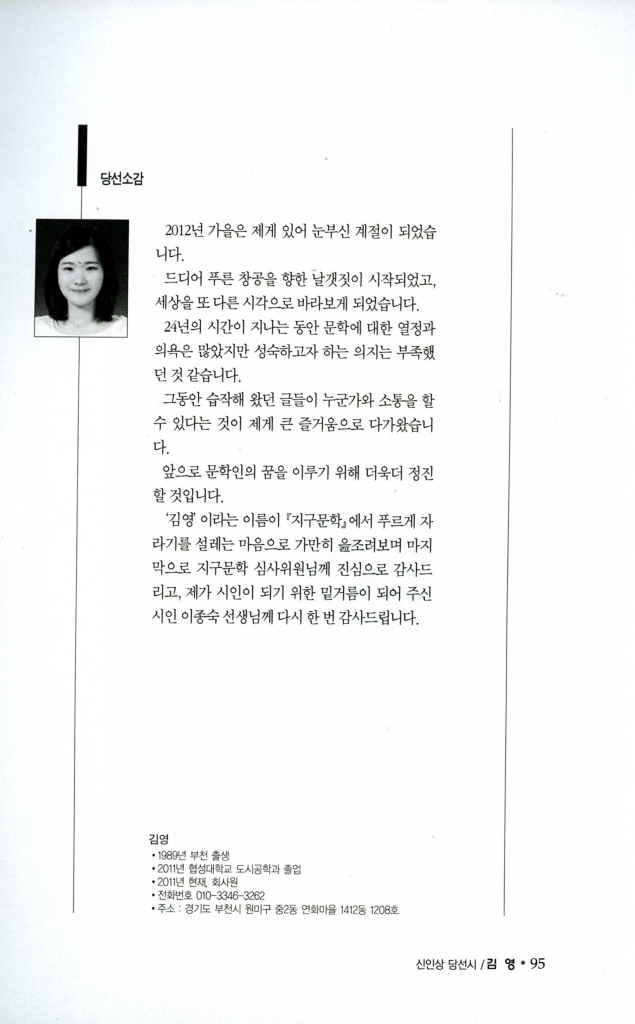 당선소감
2012년 가을은 제게 있어 눈부신 계절이 되었습
니다.
드디어 푸른 창공을 향한 날갯짓이 시작되었고,
세상을 또 다른 시각으로 바라보게 되었습니다.
24년의 시간이 지나는 동안 문학에 대한 열정과
의욕은 많았지만 성숙하고자 하는 의지는 부족했
던 것 같습니다.
그동안 습작해 왔던 글들이 누군가와 소통을 할
수 있다는 것이 제게 큰 즐거움으로 다가왔습니
다.
앞으로 문학인의 꿈을 이루기 위해 더욱더 정진
할 것입니다.
'김영' 이라는 이름이 『지구문학』에서 푸르게 자
라기를 설레는 마음으로 가만히 읊조려보며 마지
막으로 지구문학 심사위원님께 진심으로 감사드
리고, 제가 시인이 되기 위한 밑거름이 되어 주신
시인 이종숙 선생님께 다시 한 번 감사드립니다.
김영
• 1989년 부천 출생
• 2011년 협성대학교 도시공학과 졸업
• 2011년 현재, 회사원
• 전화번호 010-3346-3262
• 주소 : 경기도 부천시 원미구 중2동 연화마을 1412동 1208호
신인상 당선시 / 김 영 • 95